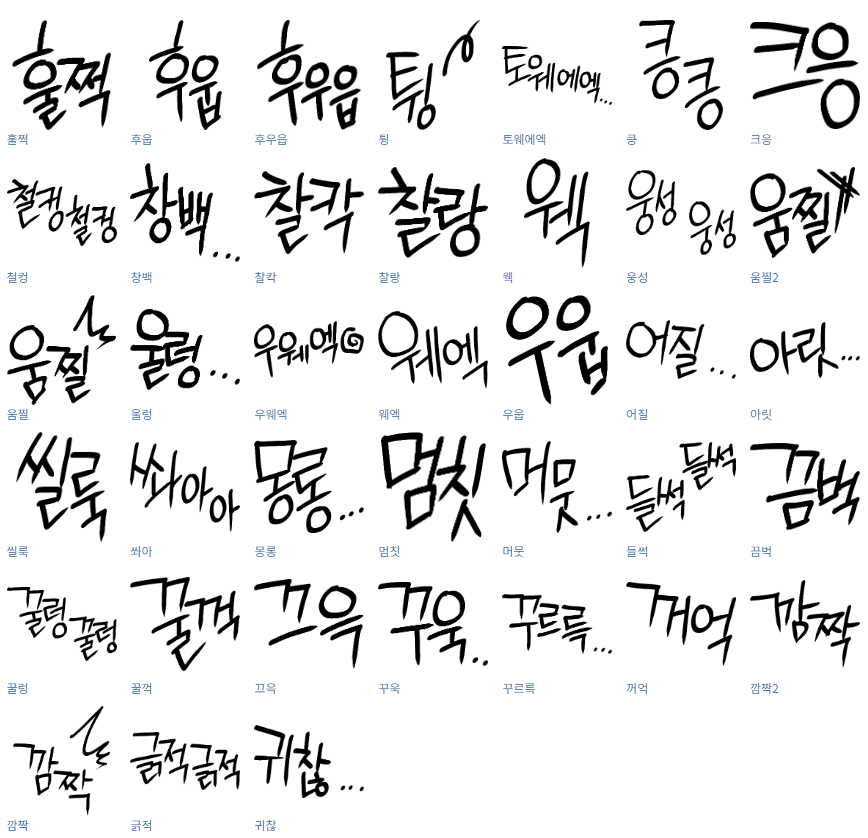 훌쩍 후웁 후우읍 튕 토웨에엑... 킁킁 크응
훌쩍 후웁 후우읍 튕 토웨에엑 킁 크응
철컹철컹 창백... 찰칵 찰랑 웩 웅성웅성 움찔
철컹 창백 찰칵 찰랑 웩 웅성 움찔2
움찔 울렁... 우웨엑 웨엑 우웁 어질... 아릿...
움찔 울렁 우웨엑 웨엑 우웁 어질 아릿
씰룩 쏴아아 몽롱... 멈칫 머뭇... 들썩들썩 끔벅
씰룩 쏴아 몽롱 멈칫 머뭇 들썩 끔벅
꿀렁꿀렁 꿀꺽 끄윽 꾸욱.. 꾸르륵... 꺼억 깜짝
꿀렁 꿀꺽 끄윽 꾸욱 꾸르륵 꺼억 깜짝2
깜짝 긁적긁적 귀찮...
깜짝 긁적 귀찮